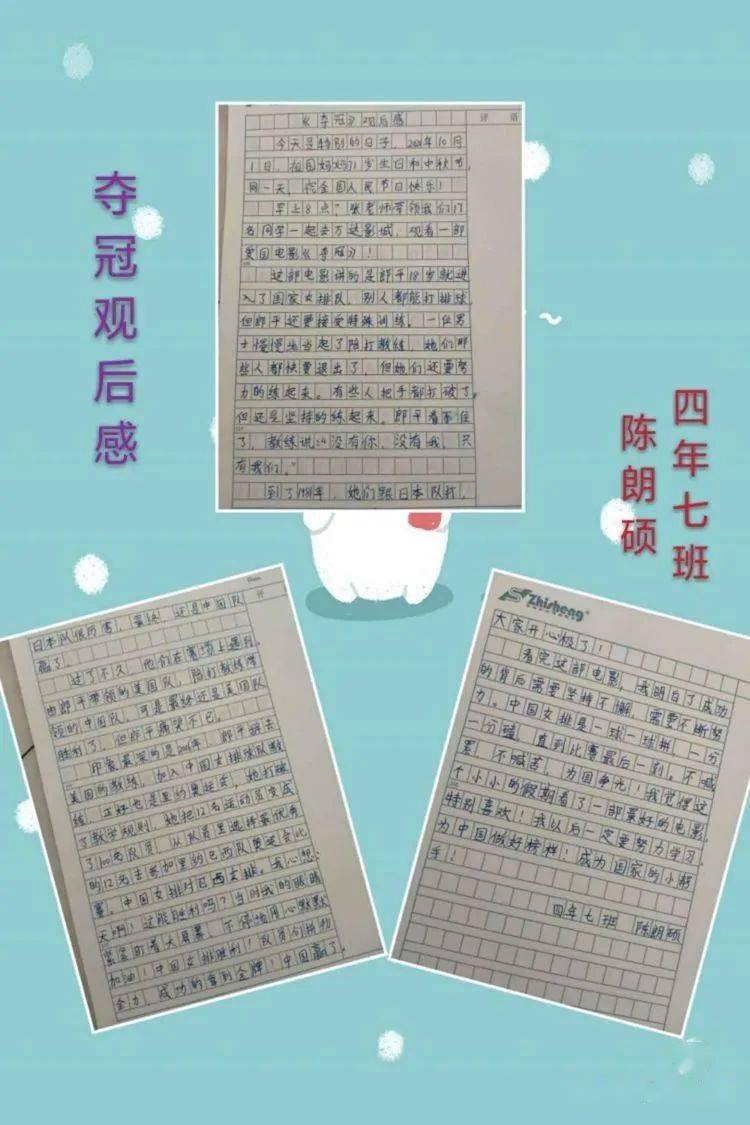 夺冠观后感
四年七班
陈朗硕
《夺冠》观后感
今天是特别的日子，2020年10月
1日，祖国妈妈71岁生日和中秋节
同一天，祝全国人民节日快乐！
早上8点，张老师带领我们17
名同学一起去万达影城，观看一部
爱国电影《夺冠》！
这部电影讲的是郎平18岁就进
入了国家女排队，别人都能打排球
但郎平还要接受特殊训练。一位男
士慢慢地当起了陪打教练，她们那
些人都快要退出了，但她们还要努
力的练起来。有些人把手都打破了，
但还是坚持的练起来。郎平看不住
了，教练说:"没有你，没有我，只
有我们。"
到了1981年，她们跟日本队打，
日本队很厉害，最终，还是中国队
赢了。
过了不久，他们在赛场上遇到
由郎平带领的美国队，陪打教练带
领的中国队，可是最终还是美国队
胜利了，但郎平痛哭不已。
印象最深的是2016年，郎平辞去
美国的教练，加入中国女排球队教
练，正好也是里约奥运会，她打破
了教学规则，她把12名运动员变成
了100名队员，从队员里选择最优秀
的12名去参加里约巴西队奥运会比
赛。中国女排对巴西女排。我心想:
天啊！这能胜利吗？当时我的眼睛
紧紧盯着大屏幕，不停地用心默默
加油！中国女排胜利！队员们拼劲
全力，成功的拿到金牌！中国赢了，
Zhisheng
大家开心极了！
看完这部电影，我明白了成功
的背后需要坚持不懈，需要不断努
力。中国女排是一球一球拼，一分
一分磕，直到比赛最后一刻。不喊
累，不喊苦，为国争光！我觉得这
个小小的假期看了一部最好的电影，
特别喜欢！我以后一定要努力学习，
为中国做好榜样！成为国家的小帮
手！
四年七班 陈朗硕